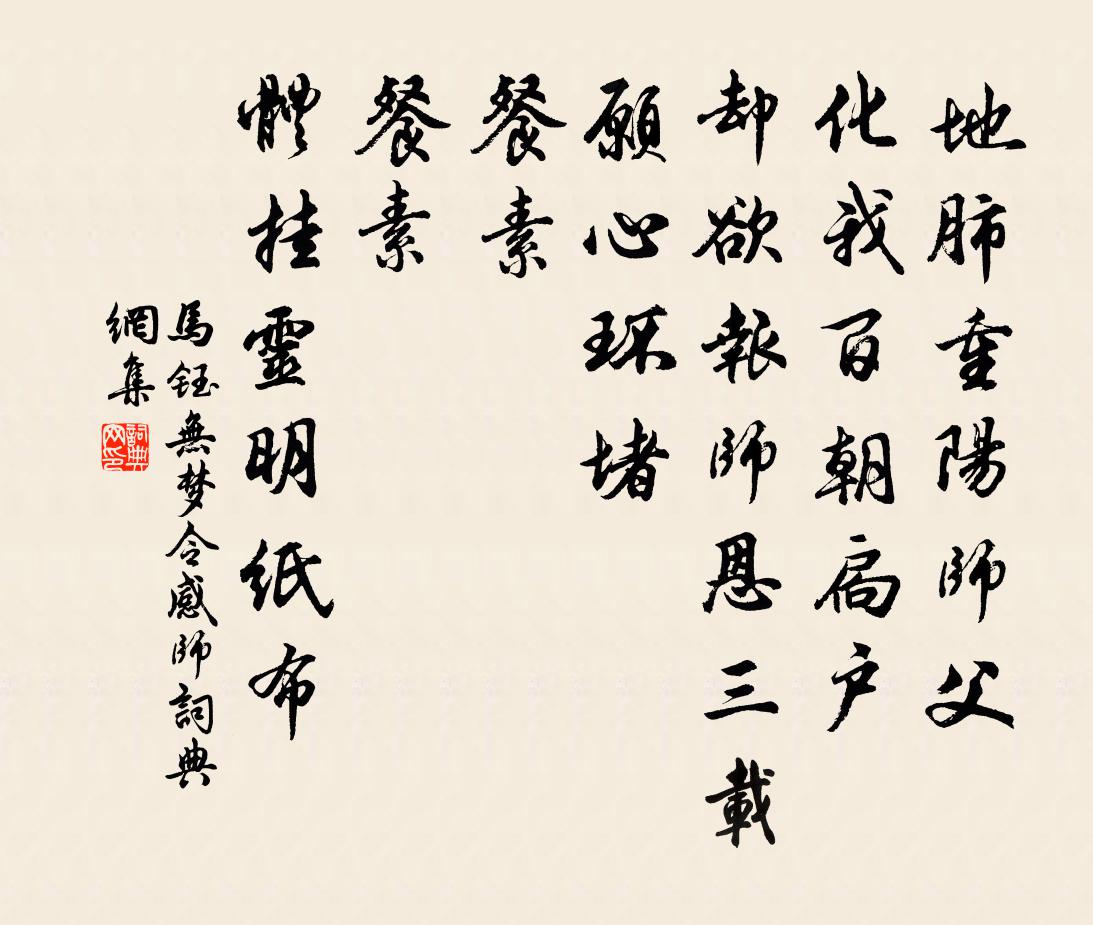 地肺重陽師父
化我百朝扃户
却欲報師恩三載
願心環堵
餐素
餐素
體挂靈明紙布
馬鈺無梦令感師詞典
網集
詞典
网印